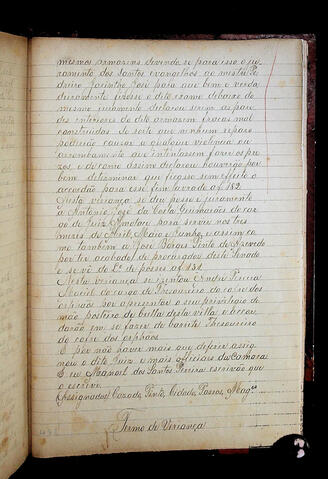 mesmos armazens devendo se para isso o ju-
ramento dos Santos evangelhos ao mestre Pe-
dreiro Jacintho José para que bem e verda-
deiramente fizesse o dito exame debaixo do
mesmo juramento declarou serem as pare-
des interiores do dito armazem fracas mal
construidas de sorte que nenhum reparo
poderião causar a qualquer violencia ou
arrombamento que intentassem fazer os pre-
zos, e de como assim declarou houverão por
bem determinar que ficasse sem effeito o
accordão para esse fim lavrado a f 182
Nesta veriança se deu posse e juramento
a Antonio José da Costa Guimarães do car-
go de Juiz Almotace para servir nos tres
mezes de Abril, Maio e Junho, e assim co-
mo tambem a José Borges Pinto de Azevedo
por ter acabado de procurador deste Senado
e se vê do L.º de posses a f 134
Nesta veriança se izentou André Pereira
Maciel do cargo de Thesoureiro do cofre dos
orphãos por apresentar o seu privilegio de
mão posteiro da bulla desta villa e accor-
darão em se fazer de barrete Thesoureiro
do cofre dos orphãos
E por não haver mais que deferir assig-
nou o dito Juiz e mais officiaes da Camara
E eu Manoel dos Santos Pereira escrivão que
o escrevi.
(Assignados) Cazado, Pinto, Cidade, Passos, Mag.es
Termo de Veriança